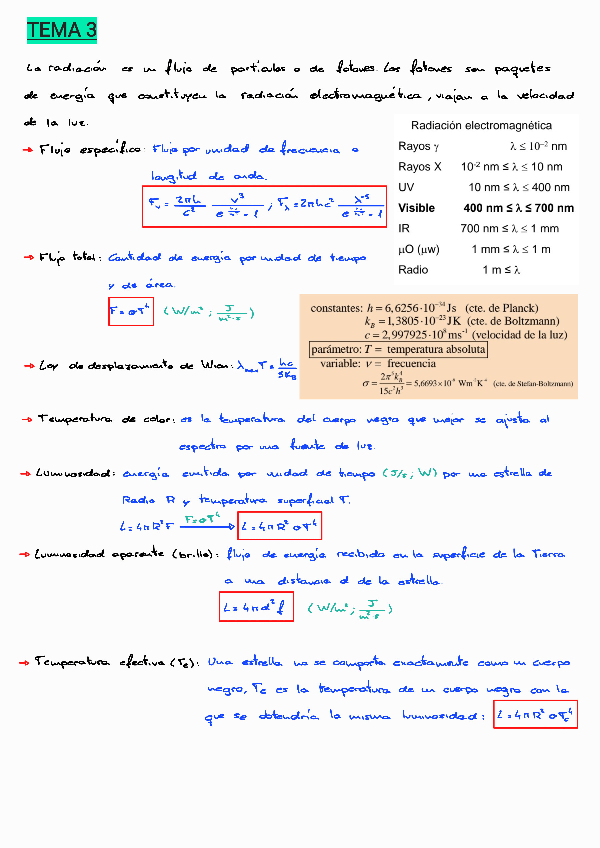 TEMA 3
La radiación es un flujo de partículas o de fotones. Los fotones son paquetes
de energía que constituyen la radiación electromagnética, viajan a la velocidad
de la luz.
Radiación electromagnética
Rayos γ λ ≤ 10⁻² nm
Rayos X 10⁻² nm ≤ λ ≤ 10 nm
UV 10 nm ≤ λ ≤ 400 nm
Visible 400 nm ≤ λ ≤ 700 nm
IR 700 nm ≤ λ ≤ 1 mm
μO (μw) 1 mm ≤ λ ≤ 1 m
Radio 1 m ≤ λ
→ Flujo específico: Flujo por unidad de frecuencia o
longitud de onda.
Fν = 2πh/c² ν³/(e^... - 1) ; Fλ = 2πhc² λ⁻⁵/(e^... - 1)
→ Flujo total: Cantidad de energía por unidad de tiempo
y de área.
F = σT⁴ (W/m² ; J/m²·s)
constantes: h = 6,6256·10⁻³⁴ Js (cte. de Planck)
k_B = 1,3805·10⁻²³ JK (cte. de Boltzmann)
c = 2,997925·10⁸ ms⁻¹ (velocidad de la luz)
parámetro: T = temperatura absoluta
variable: ν = frecuencia
σ = 2π⁵k_B⁴/15c²h³ = 5,6693×10⁻⁸ Wm⁻²K⁻⁴ (cte. de Stefan-Boltzmann)
→ Ley de desplazamiento de Wien: λmax T = hc/5k_B
→ Temperatura de color: es la temperatura del cuerpo negro que mejor se ajusta al
espectro por una fuente de luz.
→ Luminosidad: energía emitida por unidad de tiempo (J/s ; W) por una estrella de
Radio R y temperatura superficial T.
L = 4πR²F F=σT⁴ → L = 4πR²σT⁴
→ Luminosidad aparente (brillo): flujo de energía recibida en la superficie de la Tierra
a una distancia d de la estrella.
L = 4πd²f (W/m² ; J/m²·s)
→ Temperatura efectiva (Te): Una estrella no se comporta exactamente como un cuerpo
negro, Te es la temperatura de un cuerpo negro con la
que se obtendría la misma luminosidad: L = 4πR²σTe⁴